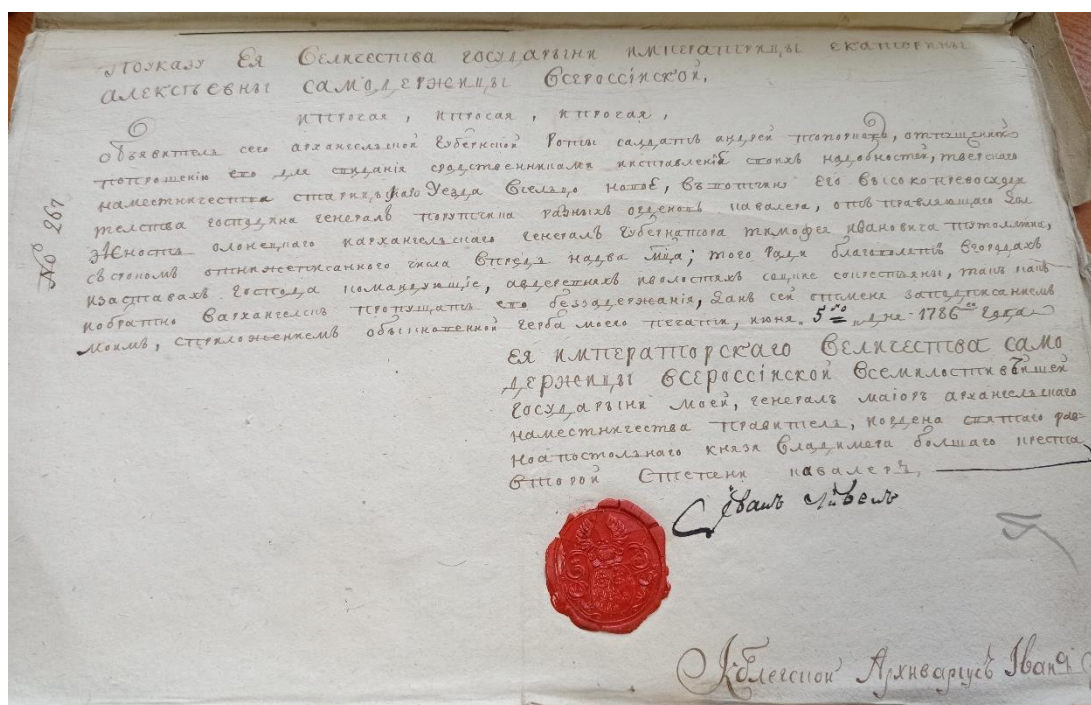 Поуказу Ея Величества государыни императрицы екатерины
алексѣевны самодержицы Всероссїнской,
ипрочая, ипрочая, ипрочая,
объявителя сего архангелской Губернской Роты салдатъ андрей топорковъ, отпущенъ
попрошенїю его для свиданїя сродственниками инсправленїй своихъ надобностей, тверскаго
наместничества старицъкаго Уезда Всельцо новое, Вьвотчину Его Высокопревосходи
телства господина генералъ порутчика разныхъ орденовъ кавалера, отправляющаго дол
жность олонецкаго иархангелскаго генералъ Губернатора тимофея ивановича тутолмина,
съсрокомъ отнижеписанного числа Впредь надва мца; того Ради благоволятъ Вгородахъ
изаставахъ Господа командующїе, авдеревняхъ иволостяхъ соцкие сокрестьяны, такъ какъ
иобратно Вархангелскъ пропущать его беззадержанїя, данъ сей отменя заподписанїемъ
моимъ, сприложенїемъ обыкновенной герба моего печати, июня 5го дня 1786го года
Ея императорскаго Величества само
держицы Всероссїнской Всемилостивѣйшей
государыни моей, генералъ маїоръ архангелскаго
наместничества правитель, иордена святаго рав
ноапостольнаго князя Владимера болшаго креста
второй степени кавалеръ,
Иванъ Ливенъ
No 267
Архиварїусъ Іванъ